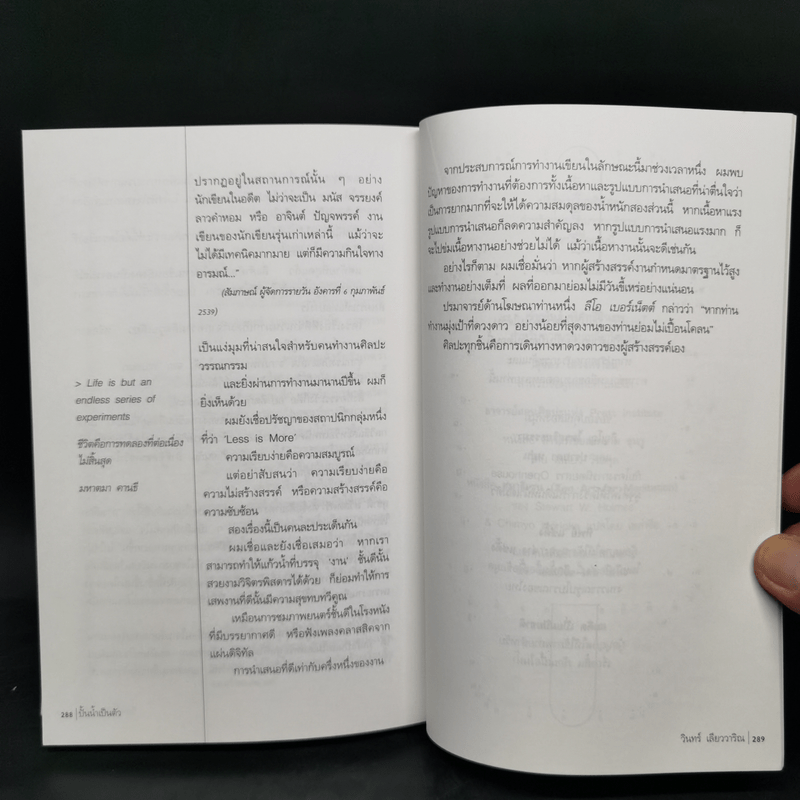 ปรากฏอยู่ในสถานการณ์นั้น ๆ อย่าง
นักเขียนในอดีต ไม่ว่าจะเป็น มนัส จรรยงค์
ลาวคำหอม หรือ อาจินต์ ปัญจพรรค์ งาน
เขียนของนักเขียนรุ่นเก่าเหล่านี้ แม้ว่าจะ
ไม่ได้มีเทคนิคมากมาย แต่ก็มีความกินใจทาง
อารมณ์..."
(สัมภาษณ์ ผู้จัดการรายวัน อังคารที่ 6 กุมภาพันธ์
2539)
เป็นแง่มุมที่น่าสนใจสำหรับคนทำงานศิลปะ
วรรณกรรม
และยิ่งผ่านการทำงานมานานปีขึ้น ผมก็
ยิ่งเห็นด้วย
ผมยังเชื่อปรัชญาของสถาปนิกกลุ่มหนึ่ง
ที่ว่า 'Less is More'
ความเรียบง่ายคือความสมบูรณ์
แต่อย่าสับสนว่า ความเรียบง่ายคือ
ความไม่สร้างสรรค์ หรือความสร้างสรรค์คือ
ความซับซ้อน
สองเรื่องนี้เป็นคนละประเด็นกัน
ผมเชื่อและยังเชื่อเสมอว่า หากเรา
สามารถทำให้แก้วน้ำที่บรรจุ 'งาน' ชั้นดีนั้น
สวยงามวิจิตรพิสดารได้ด้วย ก็ย่อมทำให้การ
เสพงานที่ดีนั้นมีความสุขทบทวีคูณ
เหมือนการชมภาพยนตร์ชั้นดีในโรงหนัง
ที่มีบรรยากาศดี หรือฟังเพลงคลาสสิคจาก
แผ่นดิจิทัล
การนำเสนอที่ดีเท่ากับครึ่งหนึ่งของงาน
> Life is but an
endless series of
experiments
ชีวิตคือการทดลองที่ต่อเนื่อง
ไม่สิ้นสุด
มหาตมา คานธี
288 | ปั้นน้ำเป็นตัว
จากประสบการณ์การทำงานเขียนในลักษณะนี้มาช่วงเวลาหนึ่ง ผมพบ
ปัญหาของการทำงานที่ต้องการทั้งเนื้อหาและรูปแบบการนำเสนอที่น่าตื่นใจว่า
เป็นการยากมากที่จะให้ได้ความสมดุลของน้ำหนักสองส่วนนี้ หากเนื้อหาแรง
รูปแบบการนำเสนอก็ลดความสำคัญลง หากรูปแบบการนำเสนอแรงมาก ก็
จะไปข่มเนื้อหางานอย่างช่วยไม่ได้ แม้ว่าเนื้อหางานนั้นจะดีเช่นกัน
อย่างไรก็ตาม ผมเชื่อมั่นว่า หากผู้สร้างสรรค์งานกำหนดมาตรฐานไว้สูง
และทำงานอย่างเต็มที่ ผลที่ออกมาย่อมไม่มีวันขี้เหร่อย่างแน่นอน
ปรมาจารย์ด้านโฆษณาท่านหนึ่ง ลีโอ เบอร์เน็ตต์ กล่าวว่า "หากท่าน
ทำงานมุ่งเป้าที่ดวงดาว อย่างน้อยที่สุดงานของท่านย่อมไม่เปื้อนโคลน"
ศิลปะทุกชิ้นคือการเดินทางหาดวงดาวของผู้สร้างสรรค์เอง
วินทร์ เลียววาริณ | 289